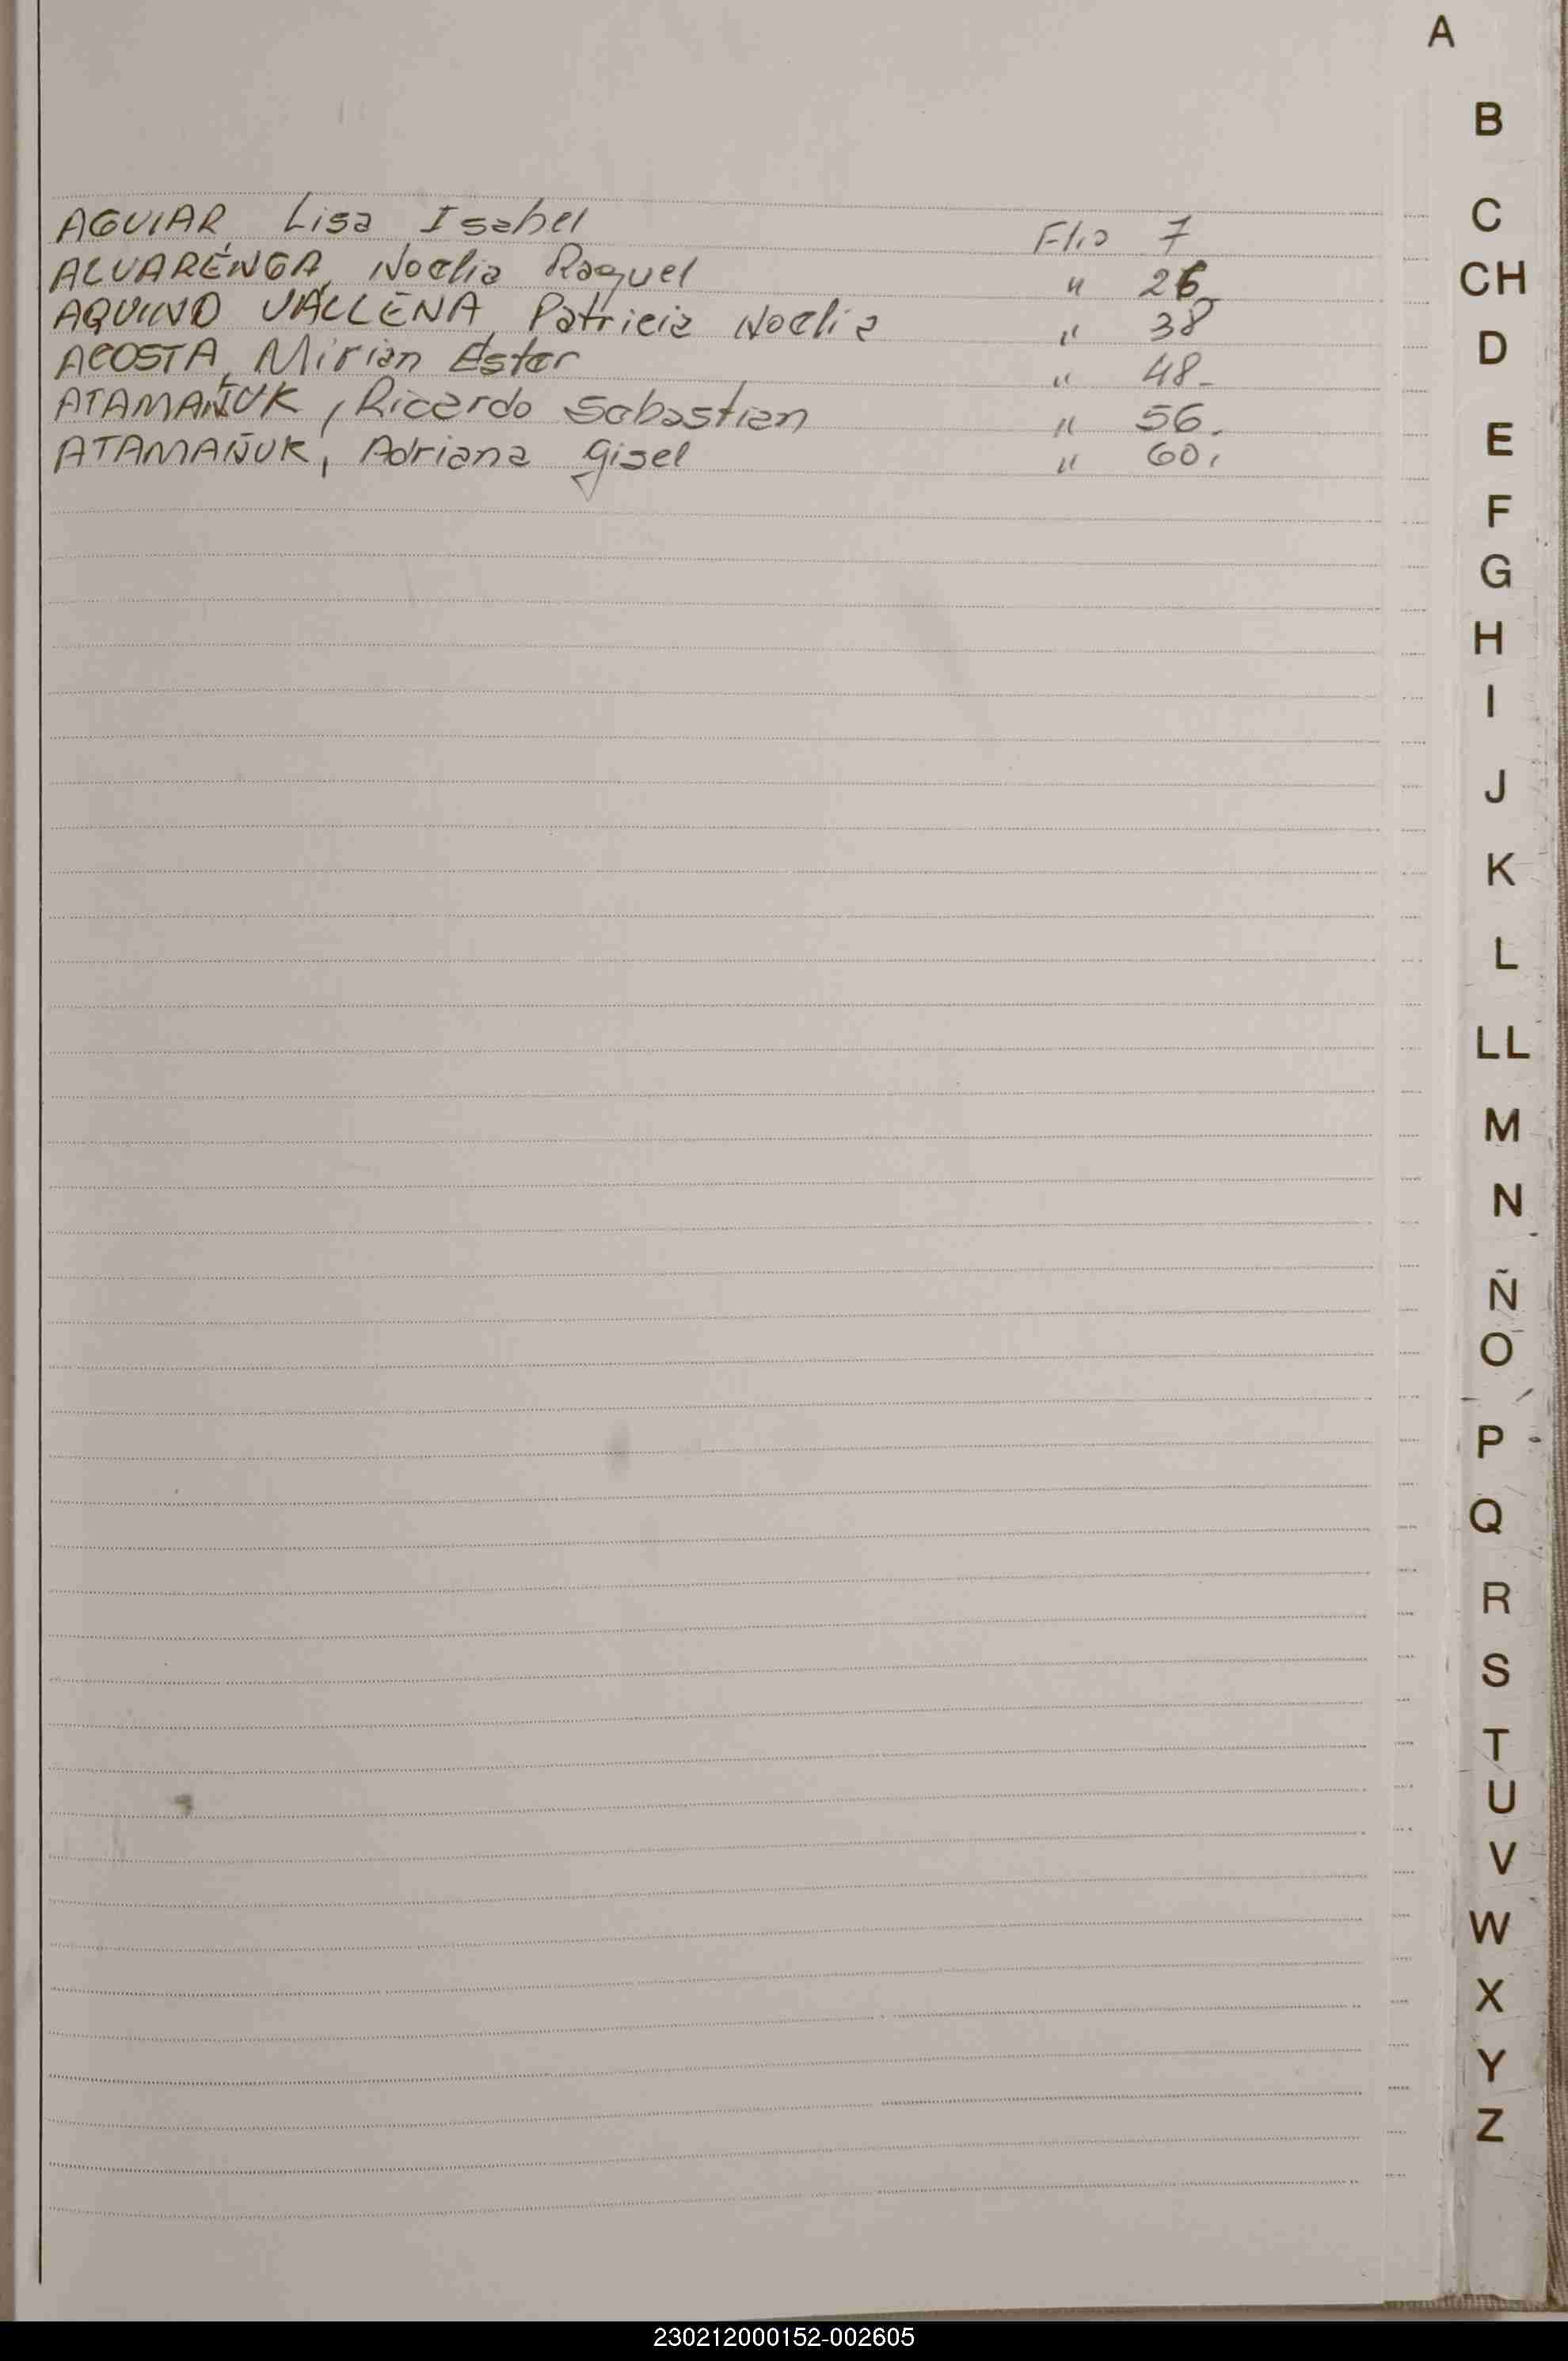 A
B
C
AGUIAR, Lisa Isabel Flio 7
CH
ALVARENGA, Noelia Raquel " 26
AQUINO VALLENA, Patricia Noelia " 38
D
ACOSTA, Mirian Ester " 48-
ATAMAÑUK, Ricardo Sebastian " 56.
E
ATAMAÑUK, Adriana Gisel " 60.
F
G
H
I
J
K
L
LL
M
N
Ñ
O
P
Q
R
S
T
U
V
W
X
Y
Z
230212000152-002605